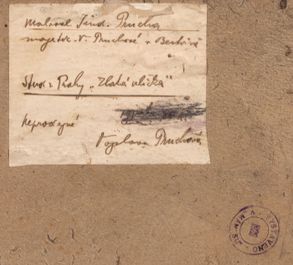 Maloval Jind. Prucha
majetek V. Pruchové v Berlíně
Stud. z Prahy „Zlatá ulička“
Neprodejné
Vojslava Pruchová
VYSTAVENO V MIN